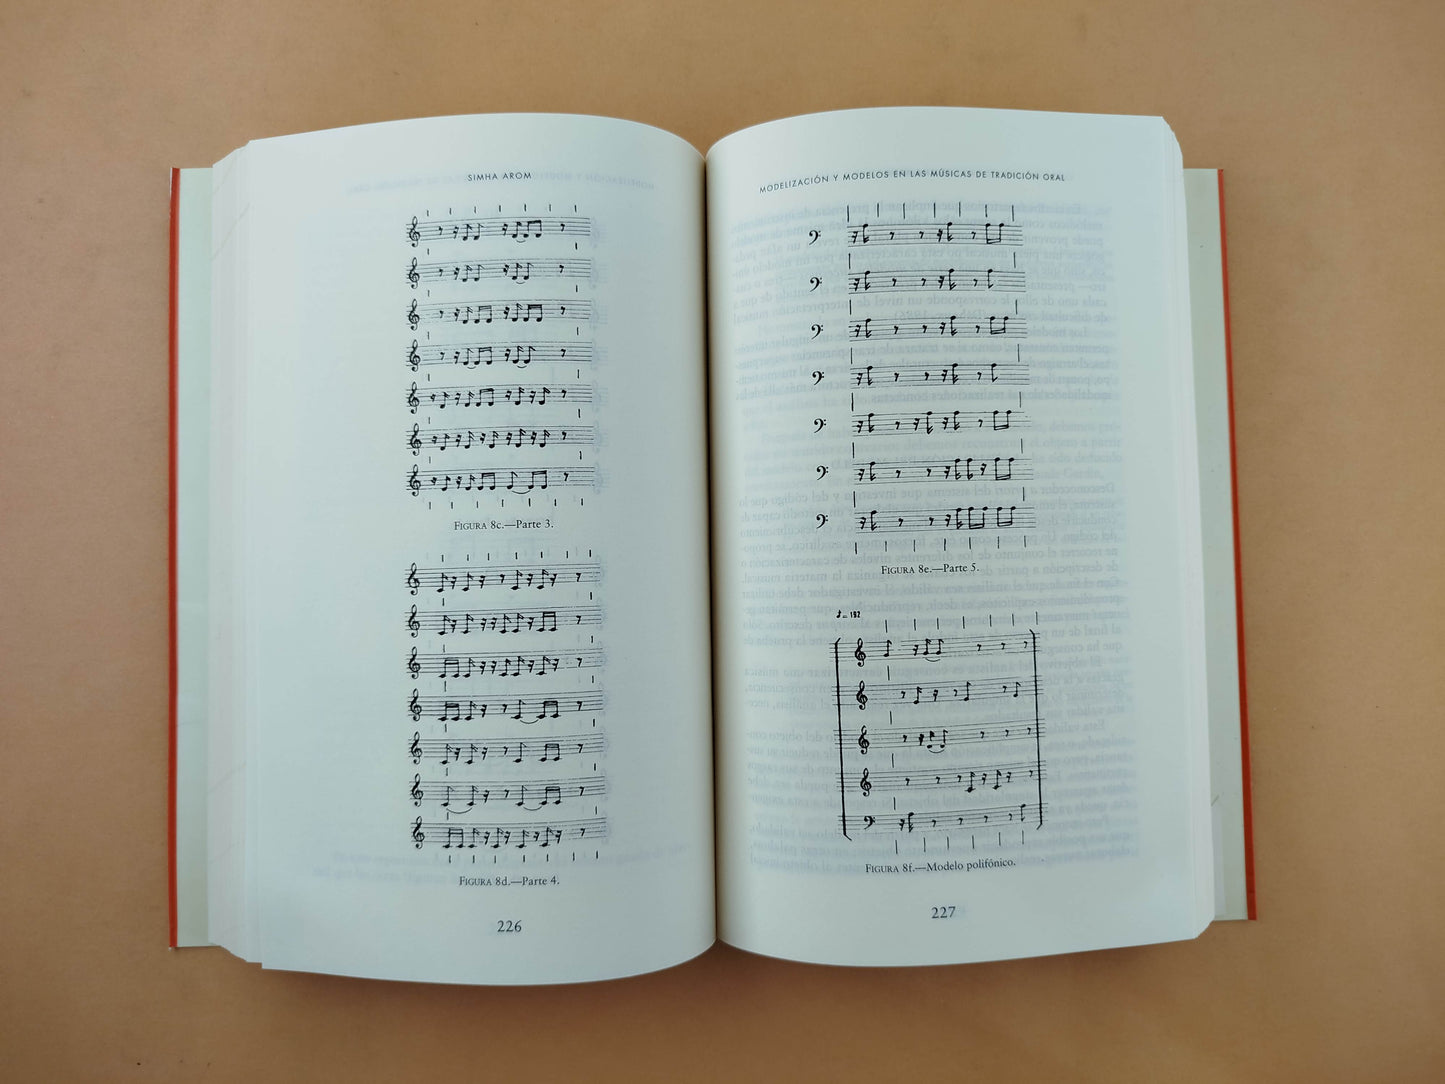 SIMHA AROM
FIGURA 8c.—Parte 3.
FIGURA 8d.—Parte 4.
226
MODELIZACIÓN Y MODELOS EN LAS MÚSICAS DE TRADICIÓN ORAL
FIGURA 8e.—Parte 5.
♪ = 192
FIGURA 8f.—Modelo polifónico.
227